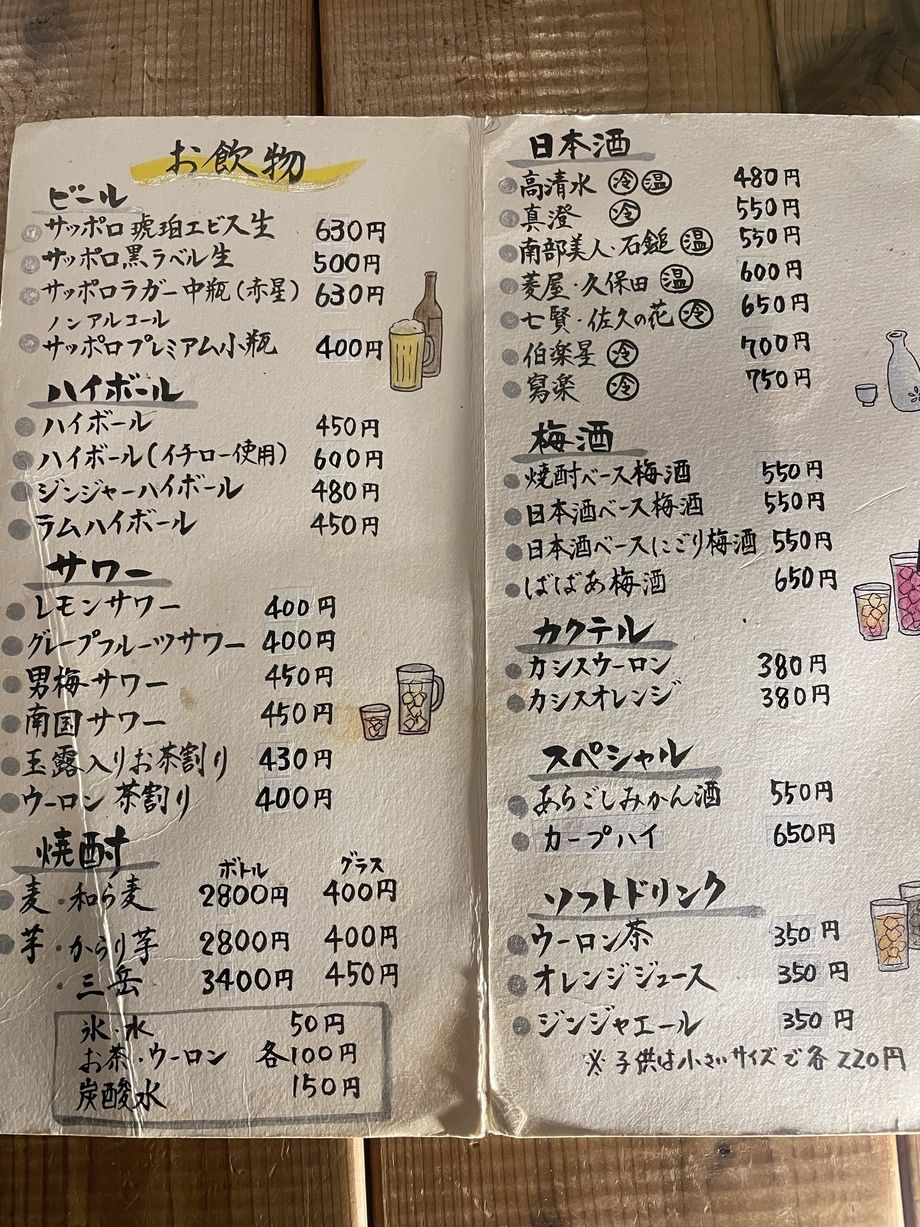 お飲物
ビール
サッポロ琥珀エビス生 630円
サッポロ黒ラベル生 500円
サッポロラガー中瓶(赤星) 630円
ノンアルコール
サッポロプレミアム小瓶 400円
ハイボール
ハイボール 450円
ハイボール(イチロー使用) 600円
ジンジャーハイボール 480円
ラムハイボール 450円
サワー
レモンサワー 400円
グレープフルーツサワー 400円
男梅サワー 450円
南国サワー 450円
玉露入りお茶割り 430円
ウーロン茶割り 400円
焼酎 ボトル グラス
麦・和ら麦 2800円 400円
芋・からり芋 2800円 400円
・三岳 3400円 450円
氷・水 50円
お茶・ウーロン 各100円
炭酸水 150円
日本酒
高清水 冷 温 480円
真澄 冷 550円
南部美人・石鎚 温 550円
菱屋・久保田 温 600円
七賢・佐久の花 冷 650円
伯楽星 冷 700円
寫楽 冷 750円
梅酒
焼酎ベース梅酒 550円
日本酒ベース梅酒 550円
日本酒ベースにごり梅酒 550円
ばばあ梅酒 650円
カクテル
カシスウーロン 380円
カシスオレンジ 380円
スペシャル
あらごしみかん酒 550円
カープハイ 650円
ソフトドリンク
ウーロン茶 350円
オレンジジュース 350円
ジンジャエール 350円
※子供は小さいサイズで各220円